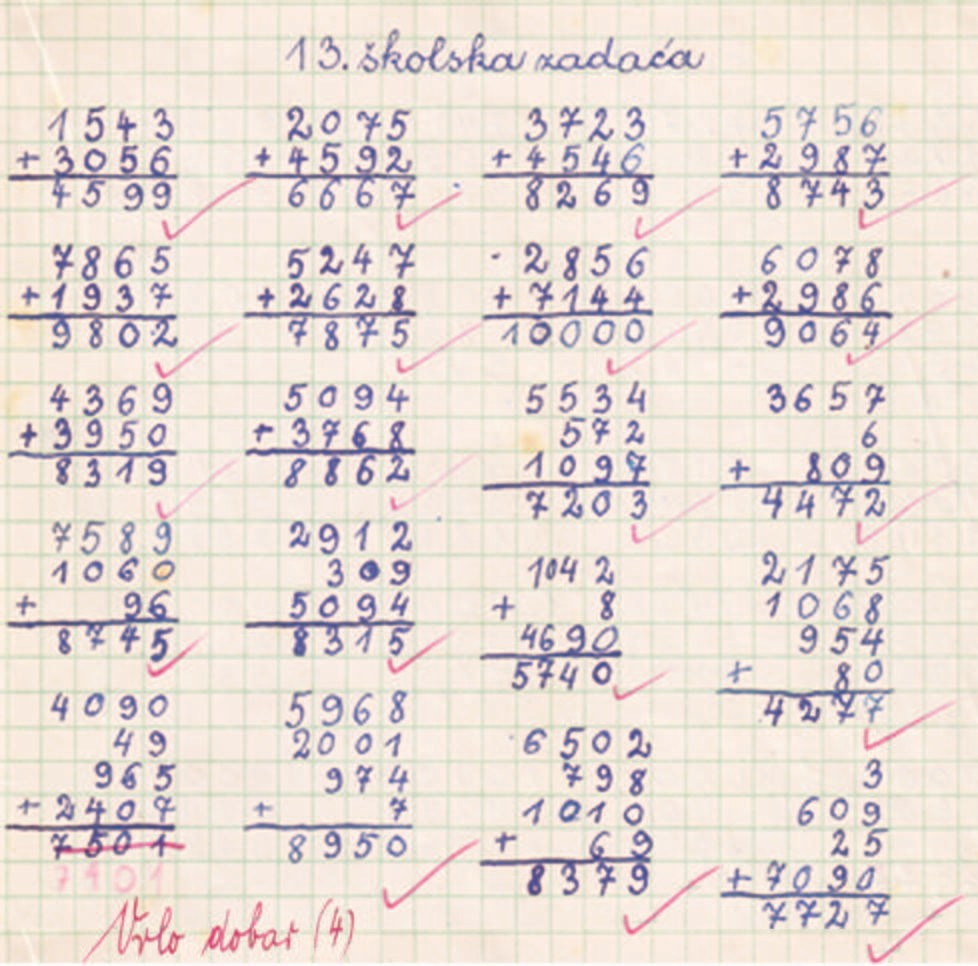 13. školska zadaća
1543
+ 3056
4599
2075
+ 4592
6667
3723
+ 4546
8269
5756
+ 2987
8743
7865
+ 1937
9802
5247
+ 2628
7875
2856
+ 7144
10000
6078
+ 2986
9064
4369
+ 3950
8319
5094
+ 3768
8862
5534
572
1097
7203
3657
6
+ 809
4472
7589
1060
+ 96
8745
2912
309
5094
8315
1042
+ 8
4690
5740
2175
1068
954
+ 80
4277
4090
49
965
+ 2407
7501
7101
5968
2001
974
+ 7
8950
6502
798
1010
+ 69
8379
3
609
25
+ 7090
7727
Vrlo dobar (4)